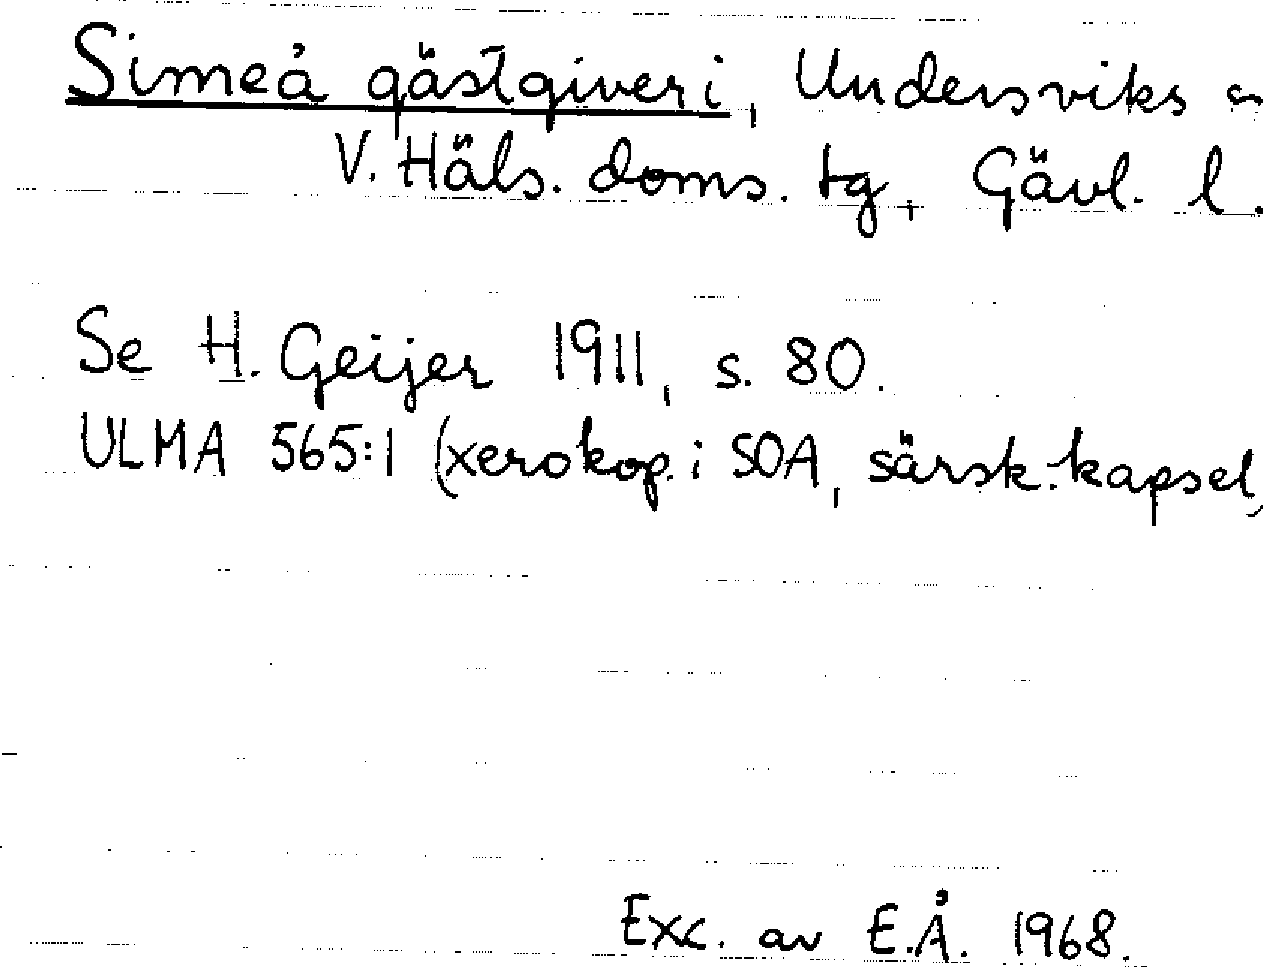 Simeå gästgiveri, Undersviks
V. Häls. doms. tg, Gävl. l.
Se H. Geijer 1911, s. 80.
ULMA 565:1 (xerokop. i SOA, särsk. kapsel,
Exc. av E.Å. 1968.